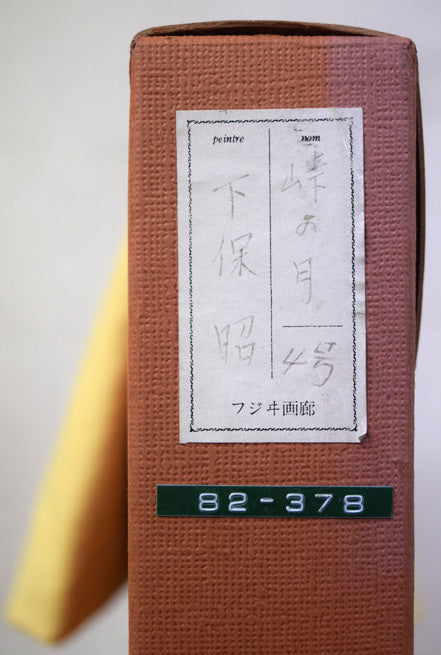 peintre
nom
峠の月
4号
下保昭
フジヰ画廊
82-378